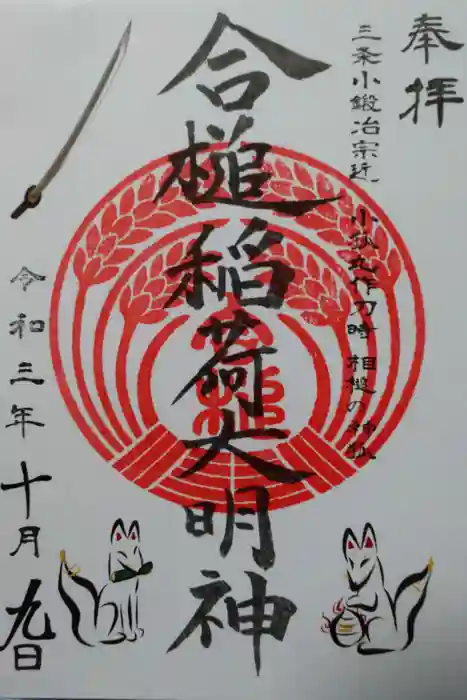 奉拝
三条小鍛冶宗近 小狐丸作刀時 相槌の神狐
合槌稲荷大明神
令和三年十月九日